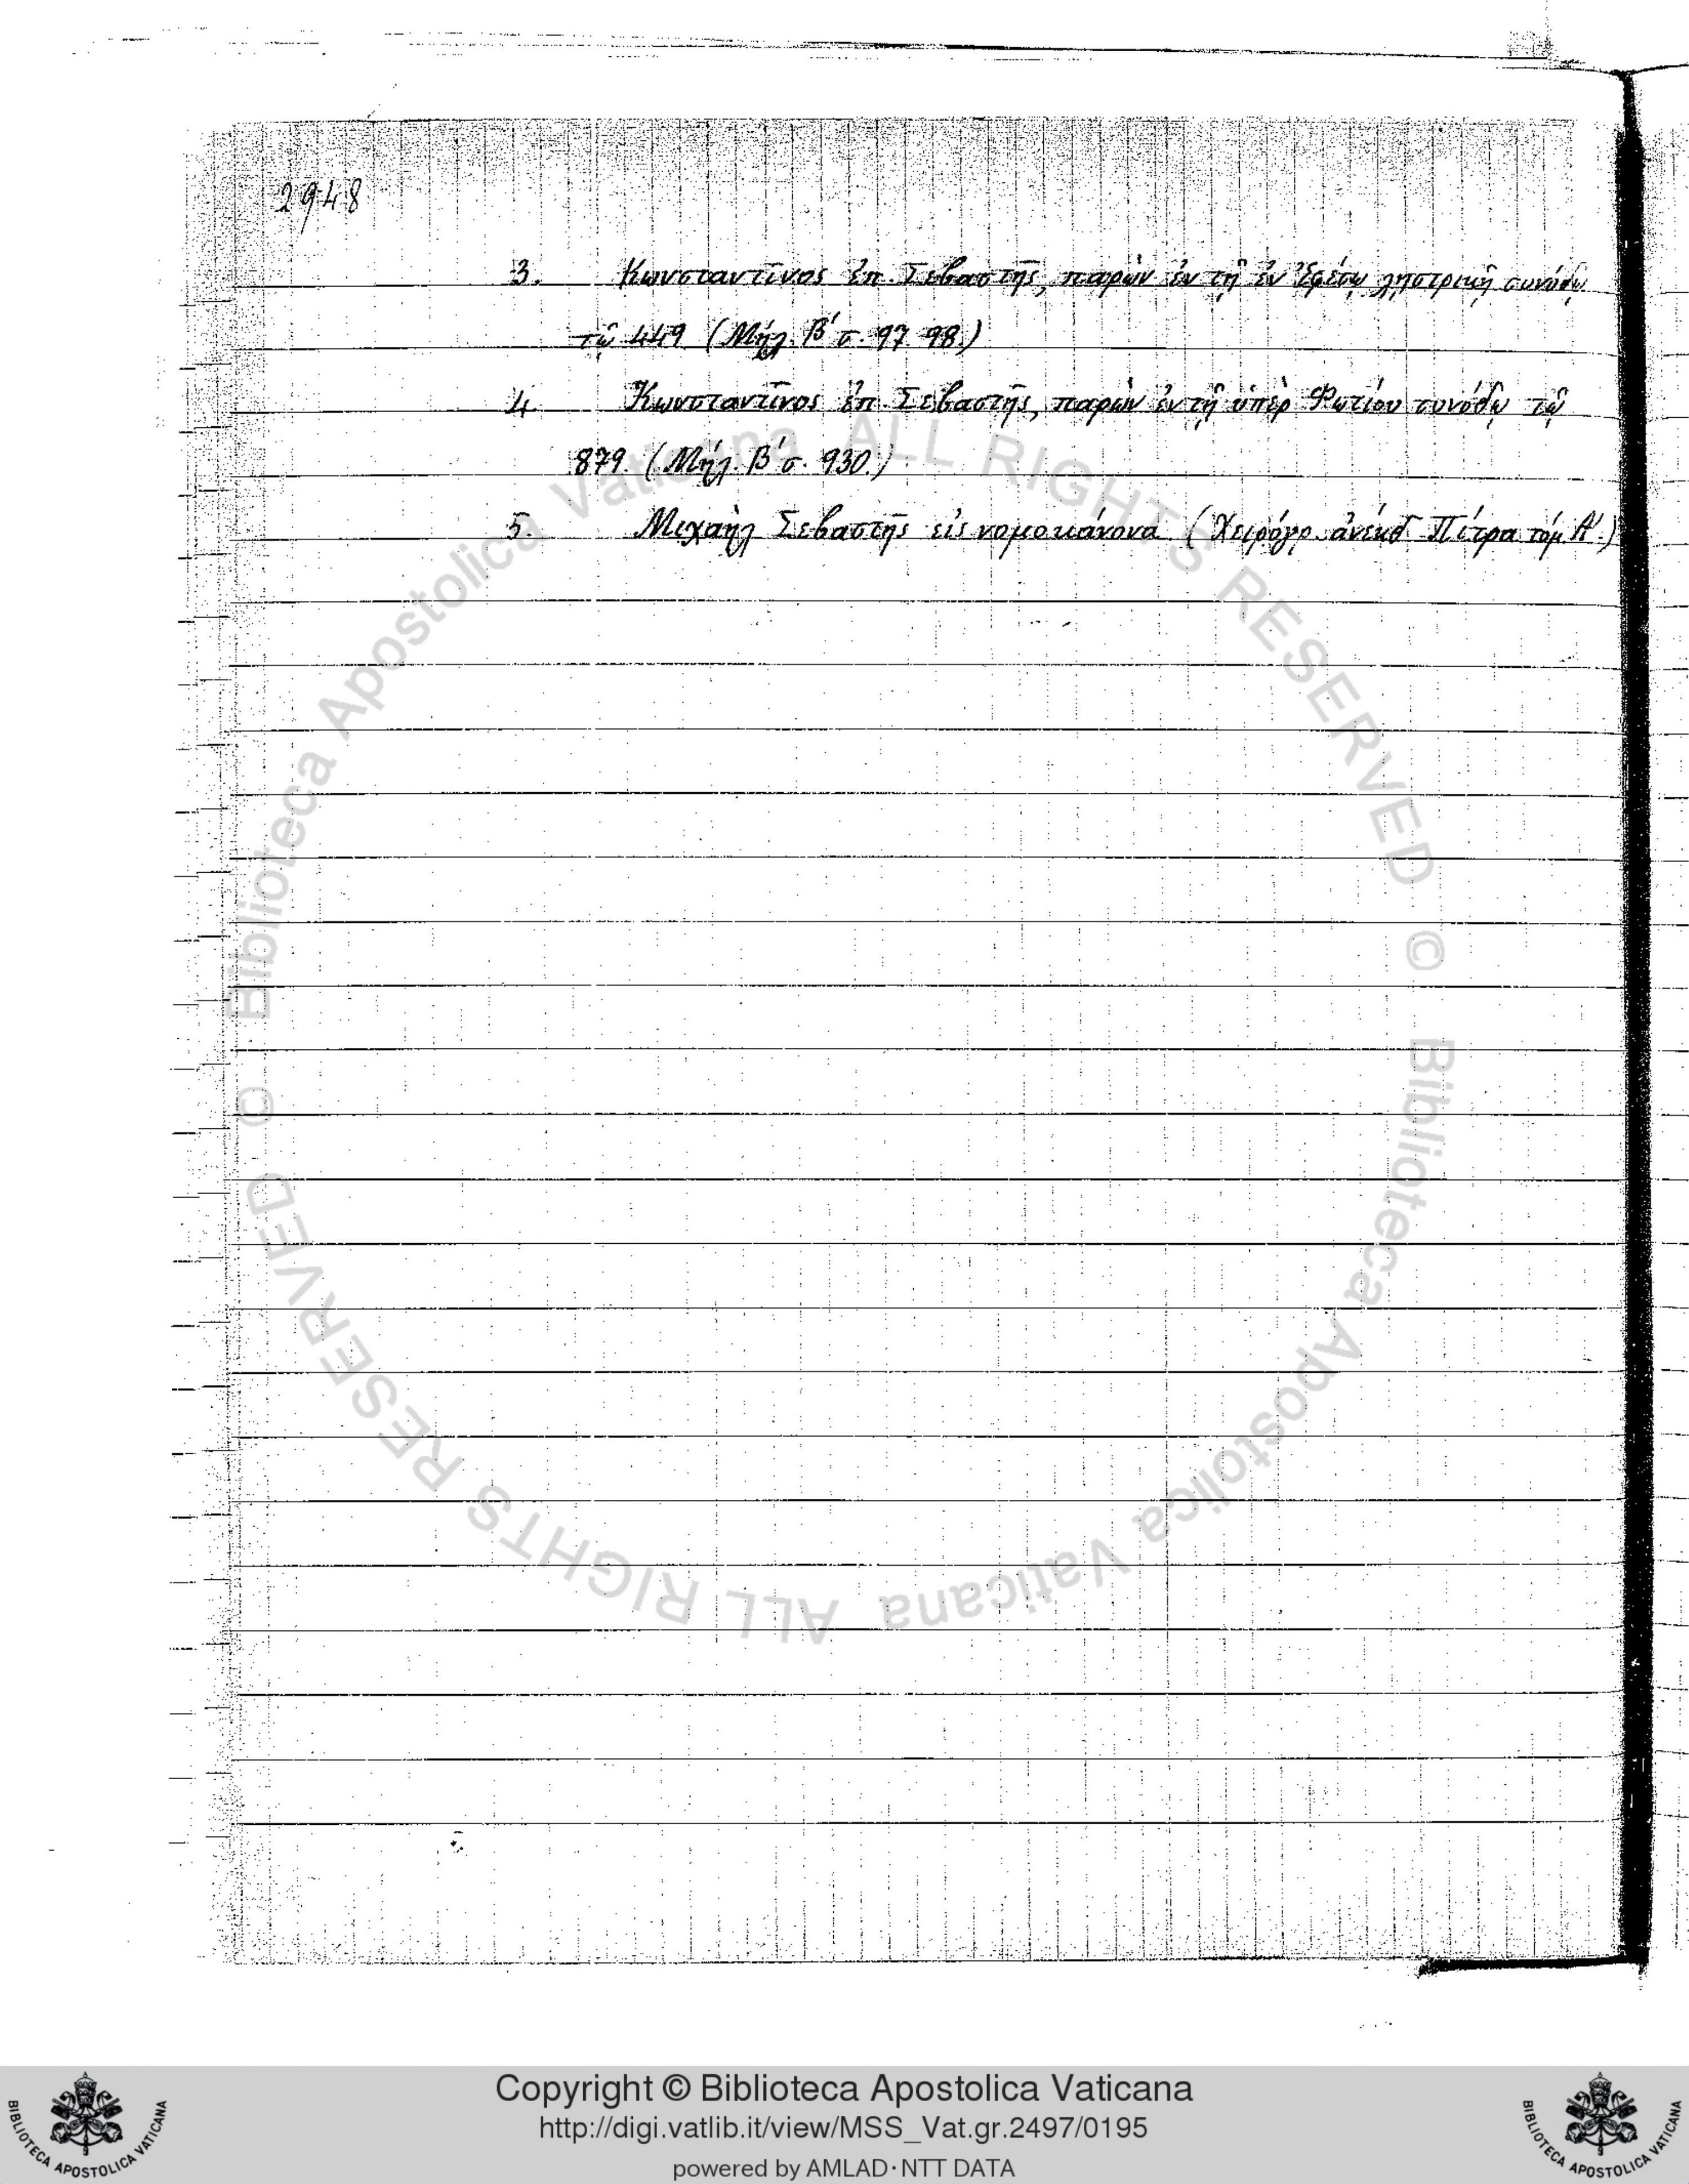 2948
3. Κωνσταντῖνος ἐπ. Σεβαστῆς, παρὼν ἐν τῇ ἐν Ἐφέσῳ λῃστρικῇ συνόδῳ
τῷ 449 (Μήλ. Β΄ σ. 97 98.)
4 Κωνσταντῖνος ἐπ. Σεβαστῆς, παρὼν ἐν τῇ ὑπὲρ Φωτίου συνόδῳ τῷ
879. (Μήλ. Β΄ σ. 930.)
5. Μιχαὴλ Σεβαστῆς εἰς νομοκάνονα (Χειρόγρ. ἀνέκδ. Πέτρα τόμ. Α΄.)
Biblioteca Apostolica Vaticana ALL RIGHTS RESERVED ©
Biblioteca Apostolica Vaticana ALL RIGHTS RESERVED ©
Copyright © Biblioteca Apostolica Vaticana
http://digi.vatlib.it/view/MSS_Vat.gr.2497/0195
powered by AMLAD·NTT DATA
BIBLIOTECA APOSTOLICA VATICANA
BIBLIOTECA APOSTOLICA VATICANA